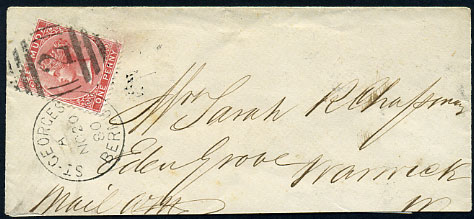 BERMUDA
ONE PENNY
ST. GEORGES BERMUDA
A
NO 20
80
Mrs Sarah R Chapman
Eden Grove
Warwick
Mail